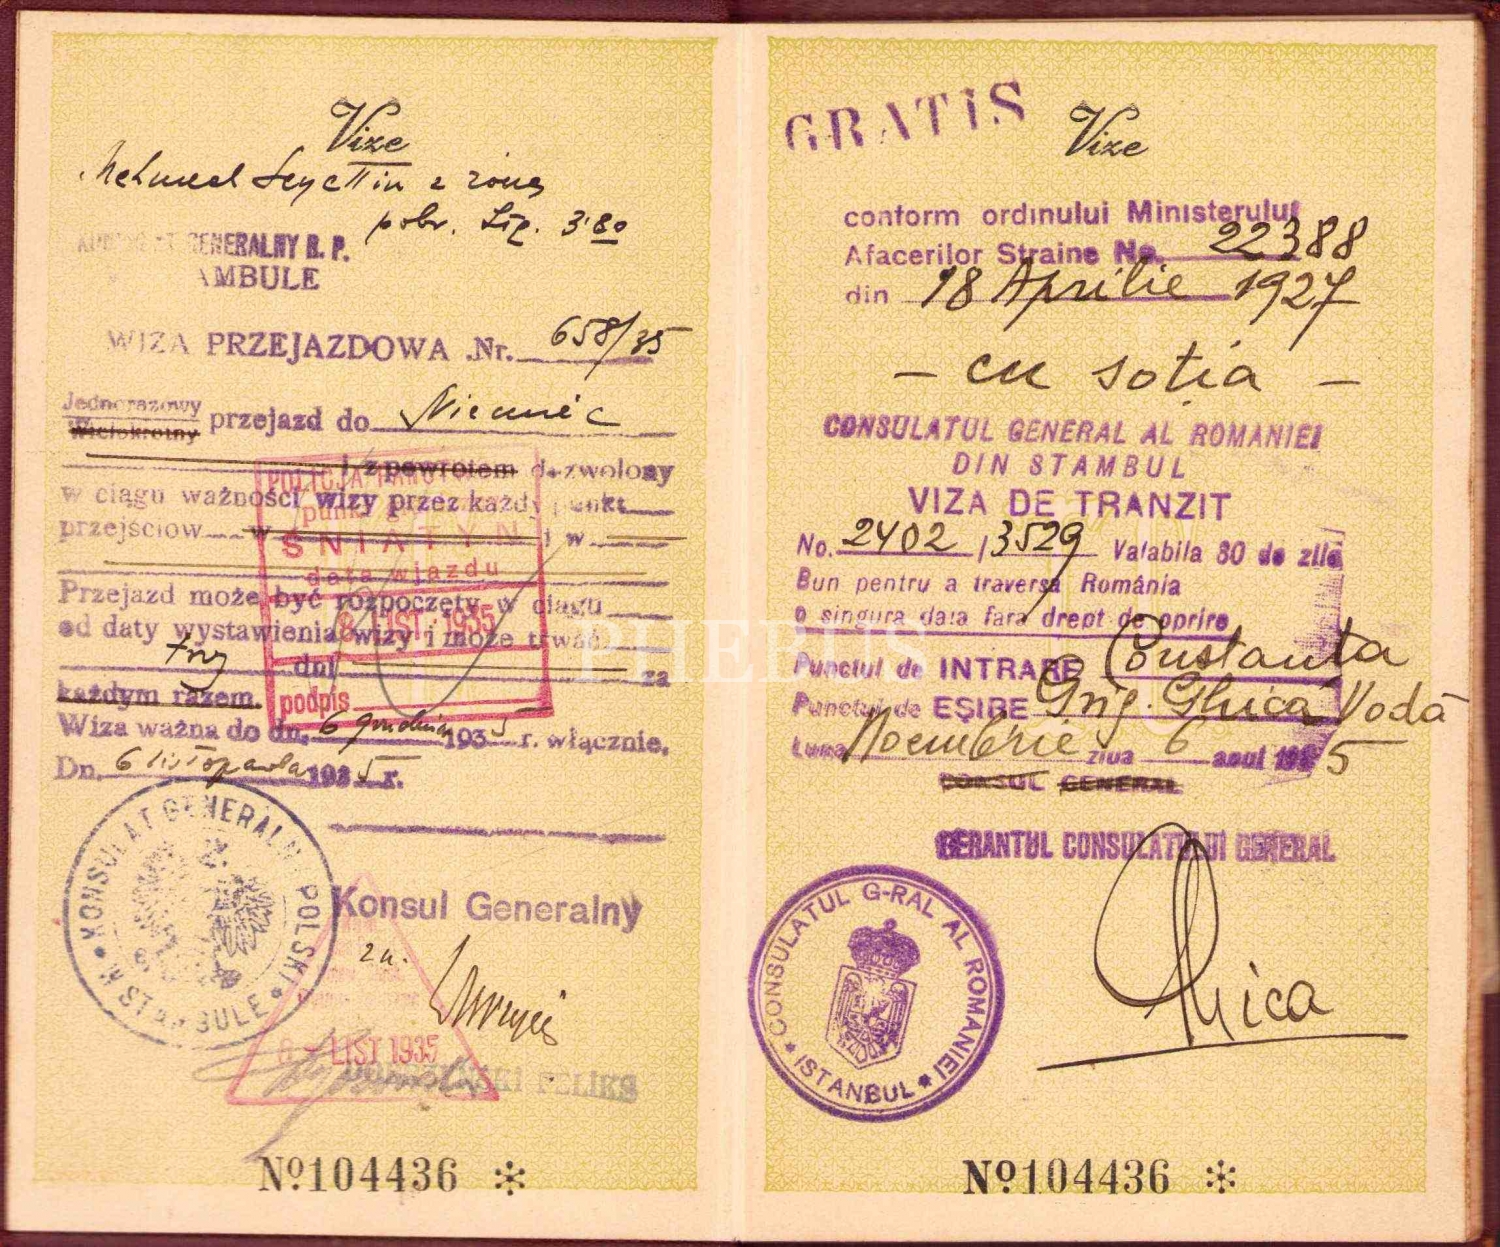 Vize
Mehmed Seyettin z żoną
pobr. 3.80
GENERALNY R. P.
AMBULE
WIZA PRZEJAZDOWA Nr. 658/35
Jednorazowy
Wielokrotny
przejazd do Niemiec
i z powrotem dozwolony
w ciągu ważności wizy przez każdy punkt
przejściow w i w
Przejazd może być rozpoczęty w ciągu
od daty wystawienia wizy i może trwać
trzy dni za
każdym razem.
Wiza ważna do dn. 6 grudnia 1935 r. włącznie.
Dn. 6 listopada 1935 r.
POLICJA
ŚNIATYN
data wjazdu
8 LIST. 1935
podpis
KONSULAT GENERALNY POLSKI
W STAMBULE
Konsul Generalny
za.
8 - LIST 1935
FELIKS
№104436 *
GRATIS
Vize
conform ordinului Ministerului
Afacerilor Straine No. 22388
din 18 Aprilie 1927
- cu soția -
CONSULATUL GENERAL AL ROMANIEI
DIN STAMBUL
VIZA DE TRANZIT
No. 2402 / 3529 Valabila 30 de zile
Bun pentru a traversa România
o singura data fara drept de oprire
Punctul de INTRARE Constanta
Punctul de EȘIRE Grig. Ghica Vodă
Luna Noembrie ziua 6 anul 1935
CONSUL GENERAL
GERANTUL CONSULATULUI GENERAL
Ghica
CONSULATUL G-RAL AL ROMANIEI
ISTANBUL
№104436 *
PHEBUS